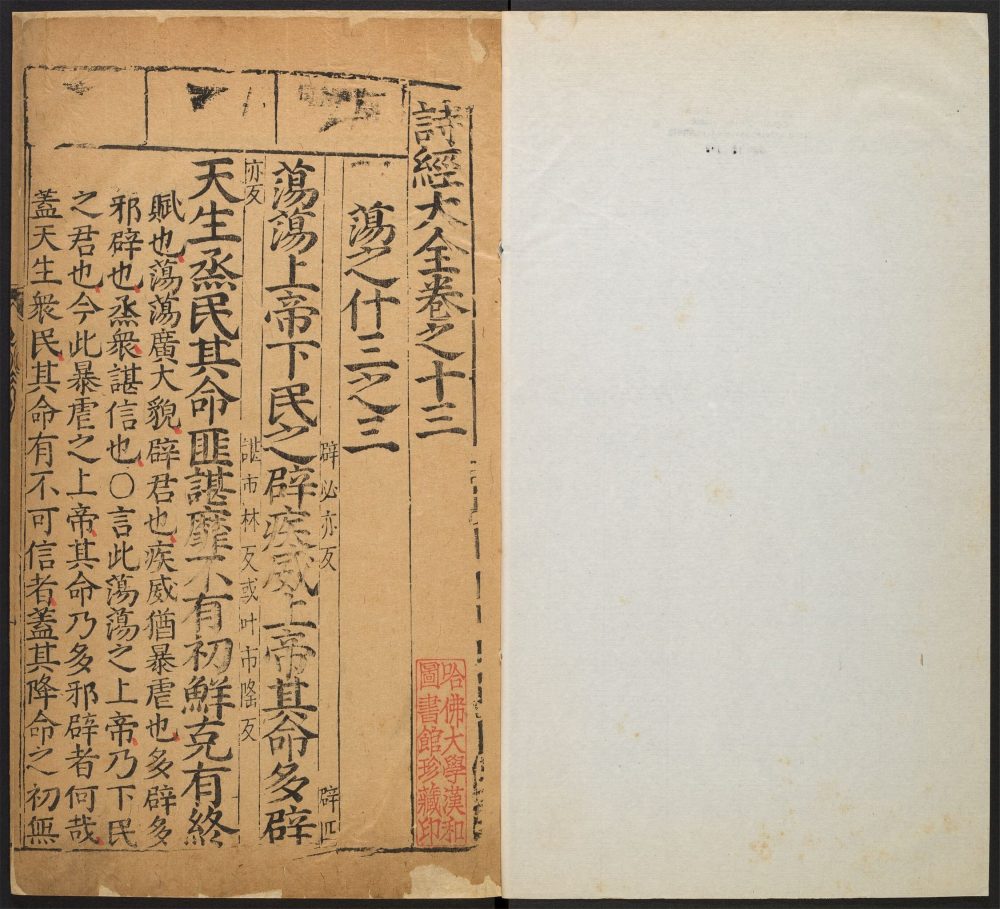 詩經大全卷之十三
蕩之什三之三
辟必亦反
辟匹
蕩蕩上帝下民之辟疾威上帝其命多辟
亦反
諶市林反或叶市隆反
天生烝民其命匪諶靡不有初鮮克有終
賦也蕩蕩廣大貌辟君也疾威猶暴虐也多辟多
邪辟也烝衆諶信也○言此蕩蕩之上帝乃下民
之君也今此暴虐之上帝其命乃多邪辟者何哉
蓋天生衆民其命有不可信者蓋其降命之初無
哈佛大學漢和
圖書館珍藏印